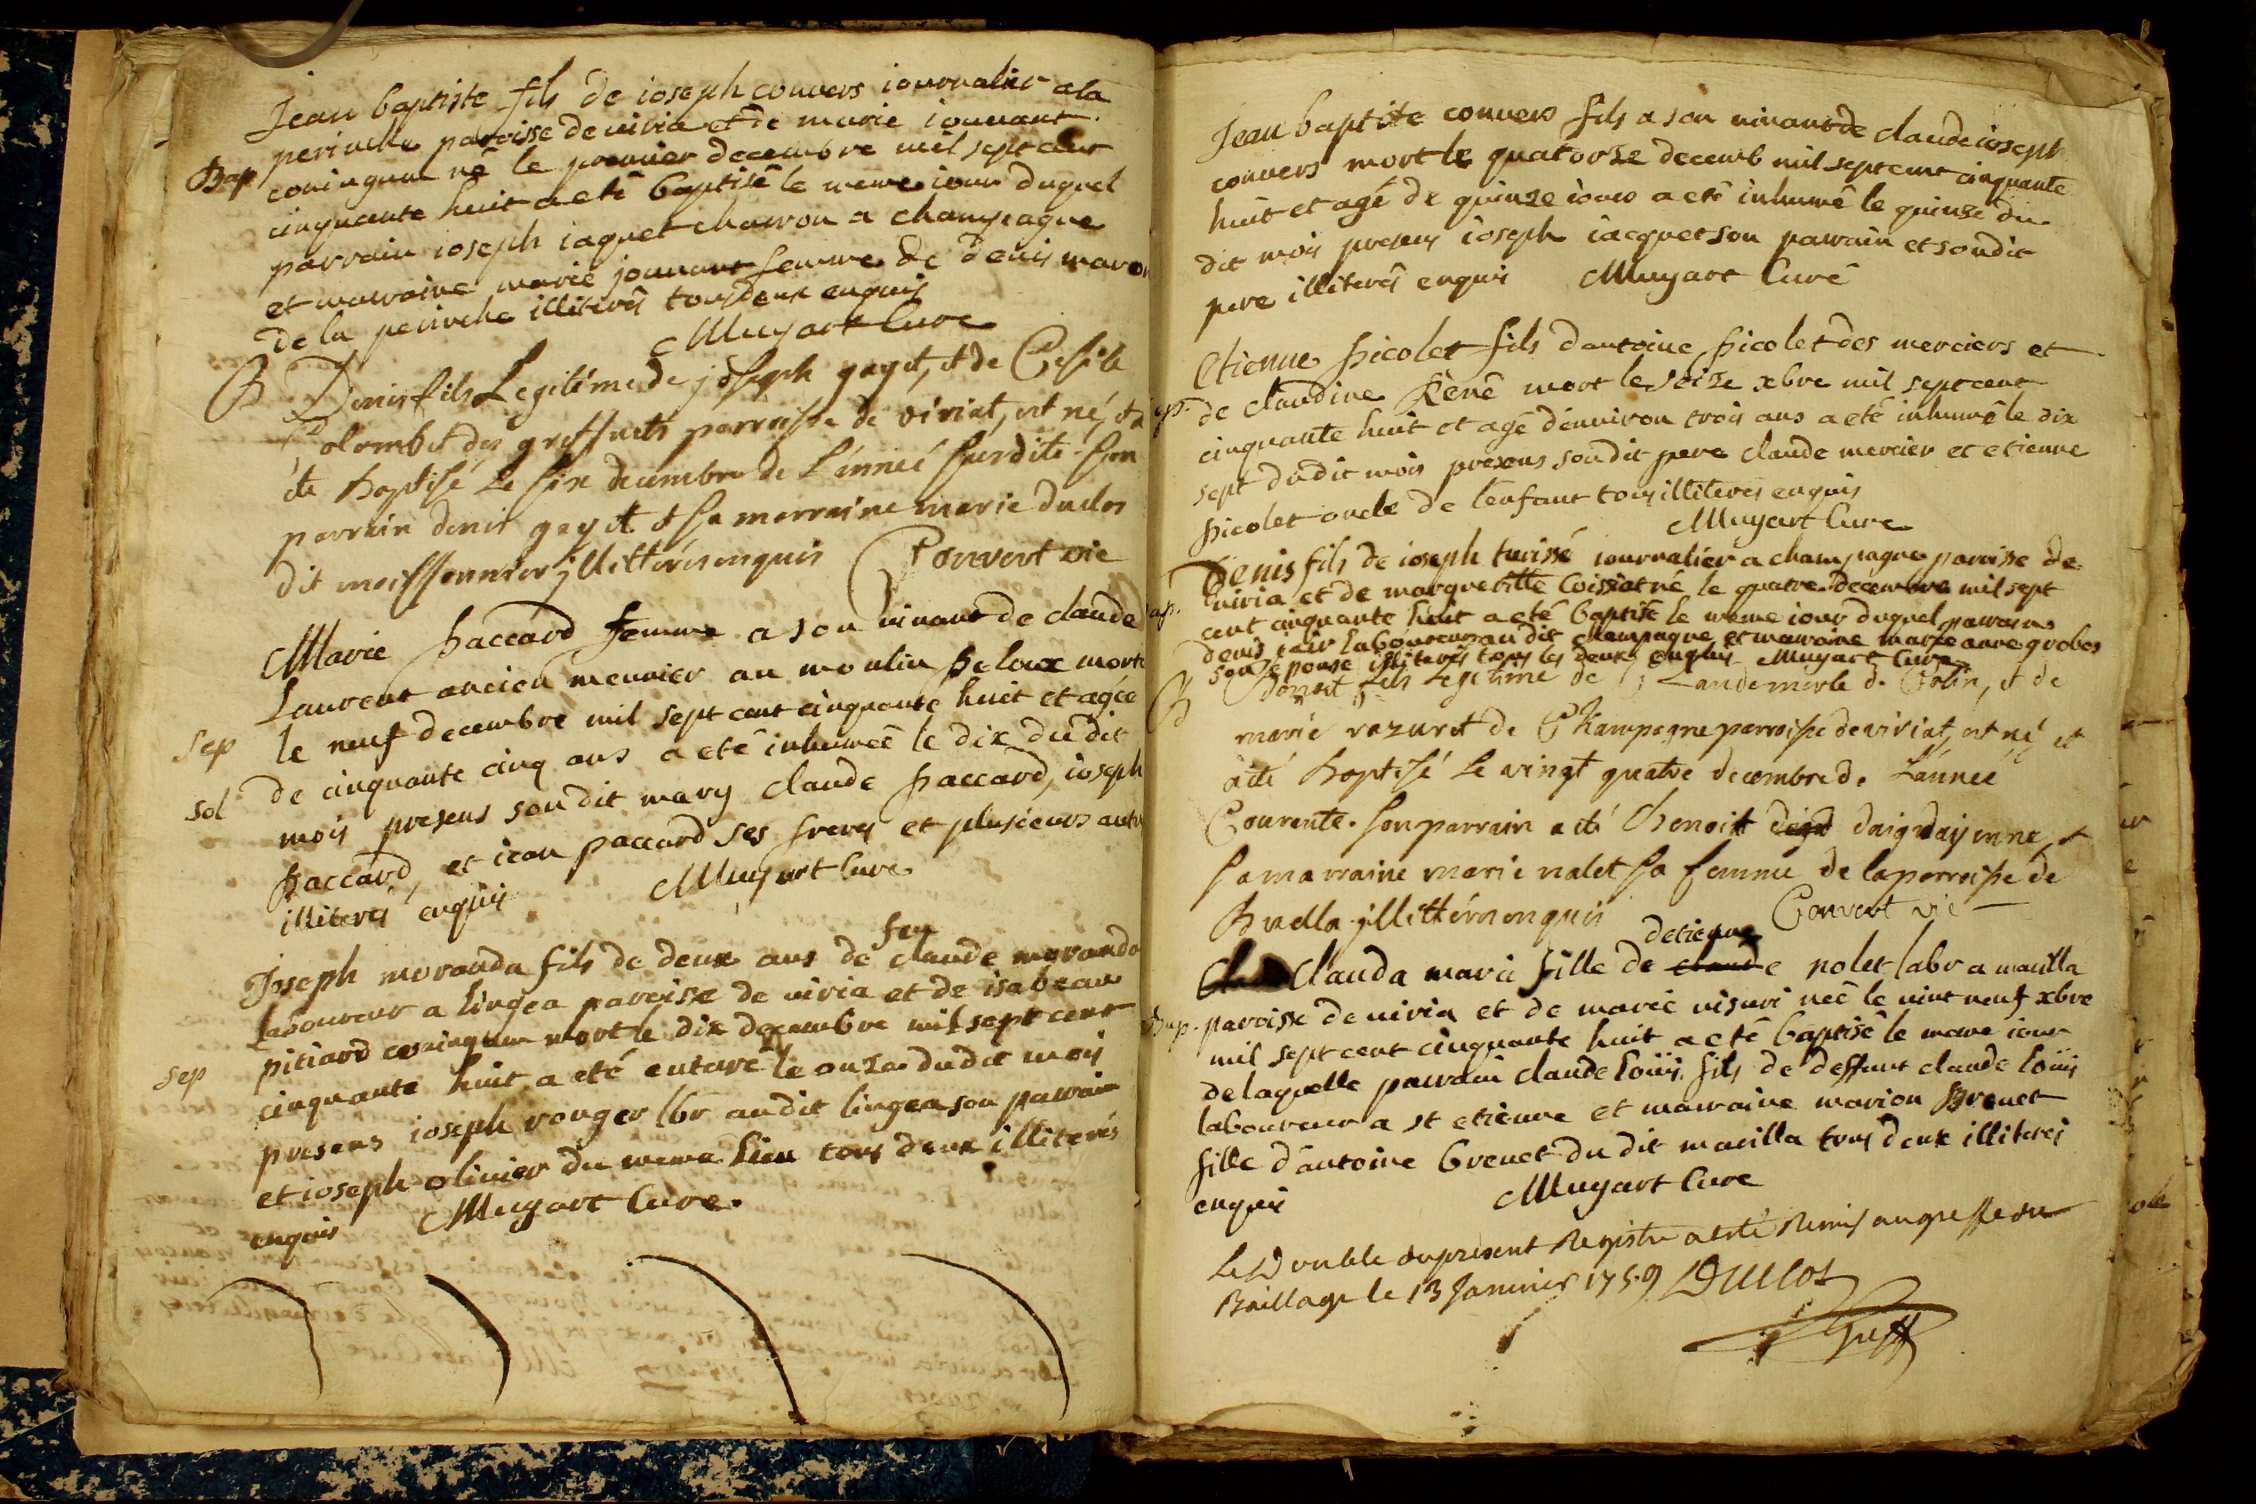 Jean baptiste fils de ioseph convers iournalier a la
perinche paroisse de viria et de marie iouvant
Bap coniugum né le premier decembre mil sept cent
cinquante huit a eté baptisé le meme iour duquel
parrain ioseph iaquet charron a champagne
et marraine marie jouvant femme de denis maron
de la perinche illiterés tous deux enquis
Muyart Curé
B Denis fils Legitime de joseph gayet, et de Cesile
Colombet des greffets parroisse de viriat, est né, et a
été Baptisé le six decembre de L'année susdite. son
parrain denis gayet et sa marraine marie duclos
dit meissonnier jllitterés enquis Convert vic
Marie paccard femme a son vivant de claude
Laurent ancien meunier au moulin peloux morte
sep le neuf decembre mil sept cent cinquante huit et agée
de cinquante cinq ans a eté inhumeé le dix du dit
sol mois presens son dit mary claude paccard, ioseph
paccard, et iean paccard ses freres et plusieurs autre
illiterés enquis Muyart Cure
feu
Joseph moranda fils de deux ans de claude moranda
laboureur a lingea paroisse de viria et de isabeau
pitiard coniugum mort le dix decembre mil sept cent
sep cinquante huit a eté enterré le onze du dit mois
presens ioseph rouger lbr au dit lingea son parrain
et ioseph olivier du meme lieu tous deux illiterés
enquis Muyart Cure.
Jean baptiste convers fils a son vivant de claude ioseph
convers mort le quatorze decemb mil sept cent cinquante
huit et agé de quinze iours a eté inhumé le quinze du
dit mois presens ioseph iacquet son parrain et son dit
pere illiterés enquis Muyart Curé
Etienne picolet fils d'antoine picolet des merciers et
de claudine René mort le seize xbre mil sept cent
cinquante huit et agé d'environ trois ans a eté inhumé le dix
sept du dit mois presens son dit pere claude mercier et etienne
picolet oncle de l'enfant tous illiterés enquis
Muyart Cure
Denis fils de ioseph turissé iournalier a champagne paroisse de
viria et de margueritte Coissiat né le quatre decembre mil sept
cent cinquante huit a eté baptisé le meme iour duquel parrain
denis laboureur au dit champagne et marraine marie anne grobos
son epouse illiterés tous les deux enquis Muyart Cure
B Benoit fils Legitime de Claude merle de Colin, et de
marie razuret de Champagne parroisse de viriat, est né et
a été Baptisé Le vingt quatre decembre de L'année
Courante. son parrain a été Benoit daigdayenne, et
sa marraine marie nalet sa femme de la parroisse de
Buella jllitterés enquis Convert vic
detienne
Clauda marie fille de claude nolet labr a macilla
Bap. paroisse de viria et de marie visuri neé le vint neuf xbre
mil sept cent cinquante huit a eté baptisé le meme iour
de laquelle parrain claude loüis fils de deffunt claude loüis
laboureur a st etienne et marraine marion Brevet
fille d'antoine brevet du dit macilla tous deux illiterés
enquis Muyart Cure
Le Double du present Registre a eté Remis au greffe du
Baillage le 13 Janvier 1759 Duclos
Greff